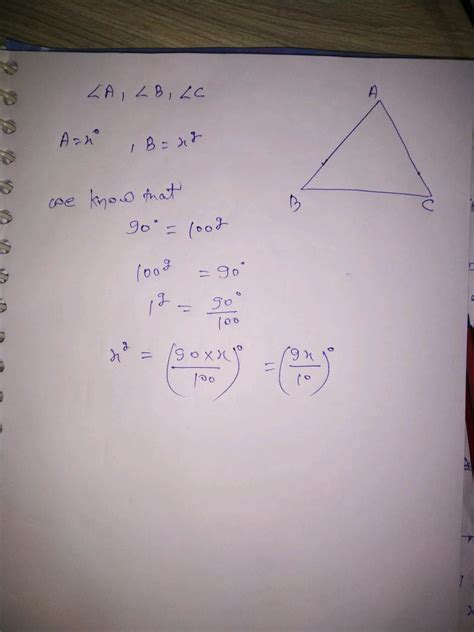 ∠A, ∠B, ∠C
A
A = x° , B = x^g
B
C
we know that
90° = 100^g
100^g = 90°
1^g = 90°/100
x^g = (90×x/100)° = (9x/10)°